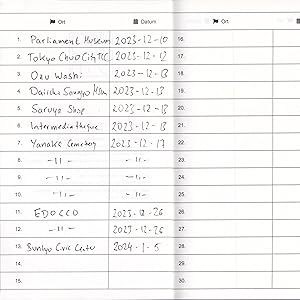 Ort Datum
1. Parliament Museum 2023-12-10
2. Tokyo Chuo City TIC 2023-12-12
3. Ozu Washi 2023-12-13
4. Daiichi Sankyo 2023-12-13
5. Saruya Shop 2023-12-13
6. Intermediatheque 2023-12-13
7. Yanaka Cemetery 2023-12-17
8. -11- -11-
9. -11- -11-
10. -11- -11-
11. EDOCCO 2023-12-26
12. -11- 2023-12-26
13. Bunkyo Civic Center 2024-1-5
14.
15.
Ort
16.
17.
18.
19.
20.
21.
22.
23.
24.
25.
26.
27.
28.
29.
30.